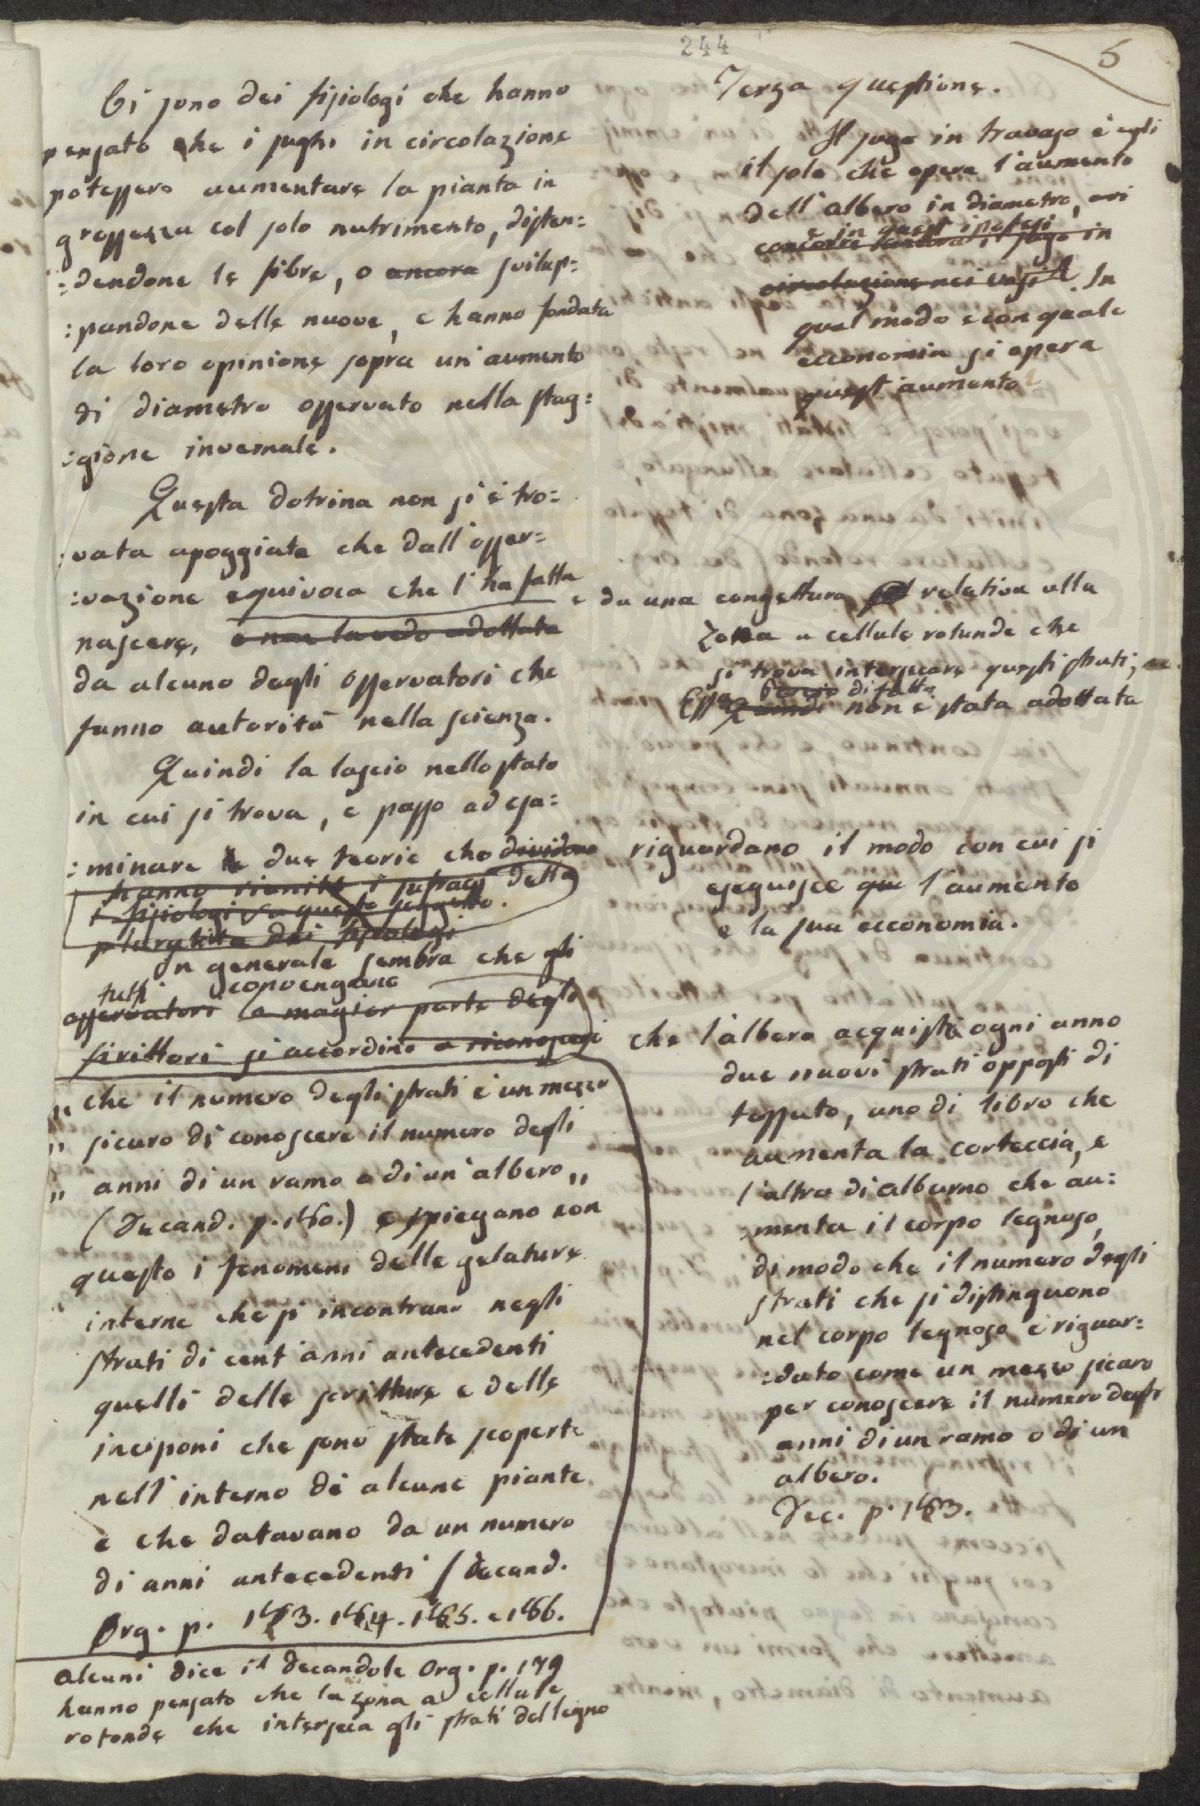 244
5
Ci sono dei fisiologi che hanno
pensato che i sughi in circolazione
potessero aumentare la pianta in
grossezza col solo nutrimento, disten:
:dendone le fibre, o ancora svilup:
:pandone delle nuove, e hanno fondata
la loro opinione sopra un'aumento
di diametro osservato nella stag:
:gione invernale.
Questa dotrina non si è tro:
:vata apoggiata che dall'osser:
:vazione equivoca che l'ha fatta
nascere, e non la vedo adottata
da alcuno degli osservatori che
fanno autorità nella scienza.
Quindi la lascio nello stato
in cui si trova, e passo ad esa:
:minare le due teorie che dividono
hanno riunito i sufragj della
fisiologi su questo soggetto.
pluralità dei fisiologi
In generale sembra che gli
tutti convengano
osservatori la magior parte degli
scrittori si accordino a riconoscere
" che il numero degli strati è un mezzo
" sicuro di conoscere il numero degli
" anni di un ramo o di un'albero "
(Decand. p. 180.) e spiegano con
questo i fenomeni delle gelature
interne che si incontrano negli
strati di cent'anni antecedenti
quelli delle scritture e delle
incisioni che sono state scoperte
nell'interno di alcune piante
e che datavano da un numero
di anni antecedenti (Decand.
Org. p. 183. 184. 185. e 186.
alcuni dice il Decandole Org. p. 179
hanno pensato che la zona a cellule
rotonde che interseca gli strati del legno
Terza questione.
Il sugo in travaso è egli
il solo che opera l'aumento
dell'albero in diametro, ovi
in quest'ipotesi
concorre ancora il sugo in
circolazione nei vasi? In
qual modo e con quale
economia si opera
quest'aumento
e da una congettura relativa alla
zona a cellule rotunde che
si trova intersecare questi strati;
di fatto
Essa Quindi non è stata adottata
riguardano il modo con cui si
eseguisce que l'aumento
e la sua economia.
che l'albero acquista ogni anno
due nuovi strati opposti di
tessuto, uno di libro che
aumenta la corteccia, e
l'altro di alburno che au:
:menta il corpo legnoso,
di modo che il numero degli
strati che si distinguono
nel corpo legnoso è riguar:
:dato come un mezzo sicuro
per conoscere il numero degli
anni di un ramo o di un
albero.
Dec. p. 183.